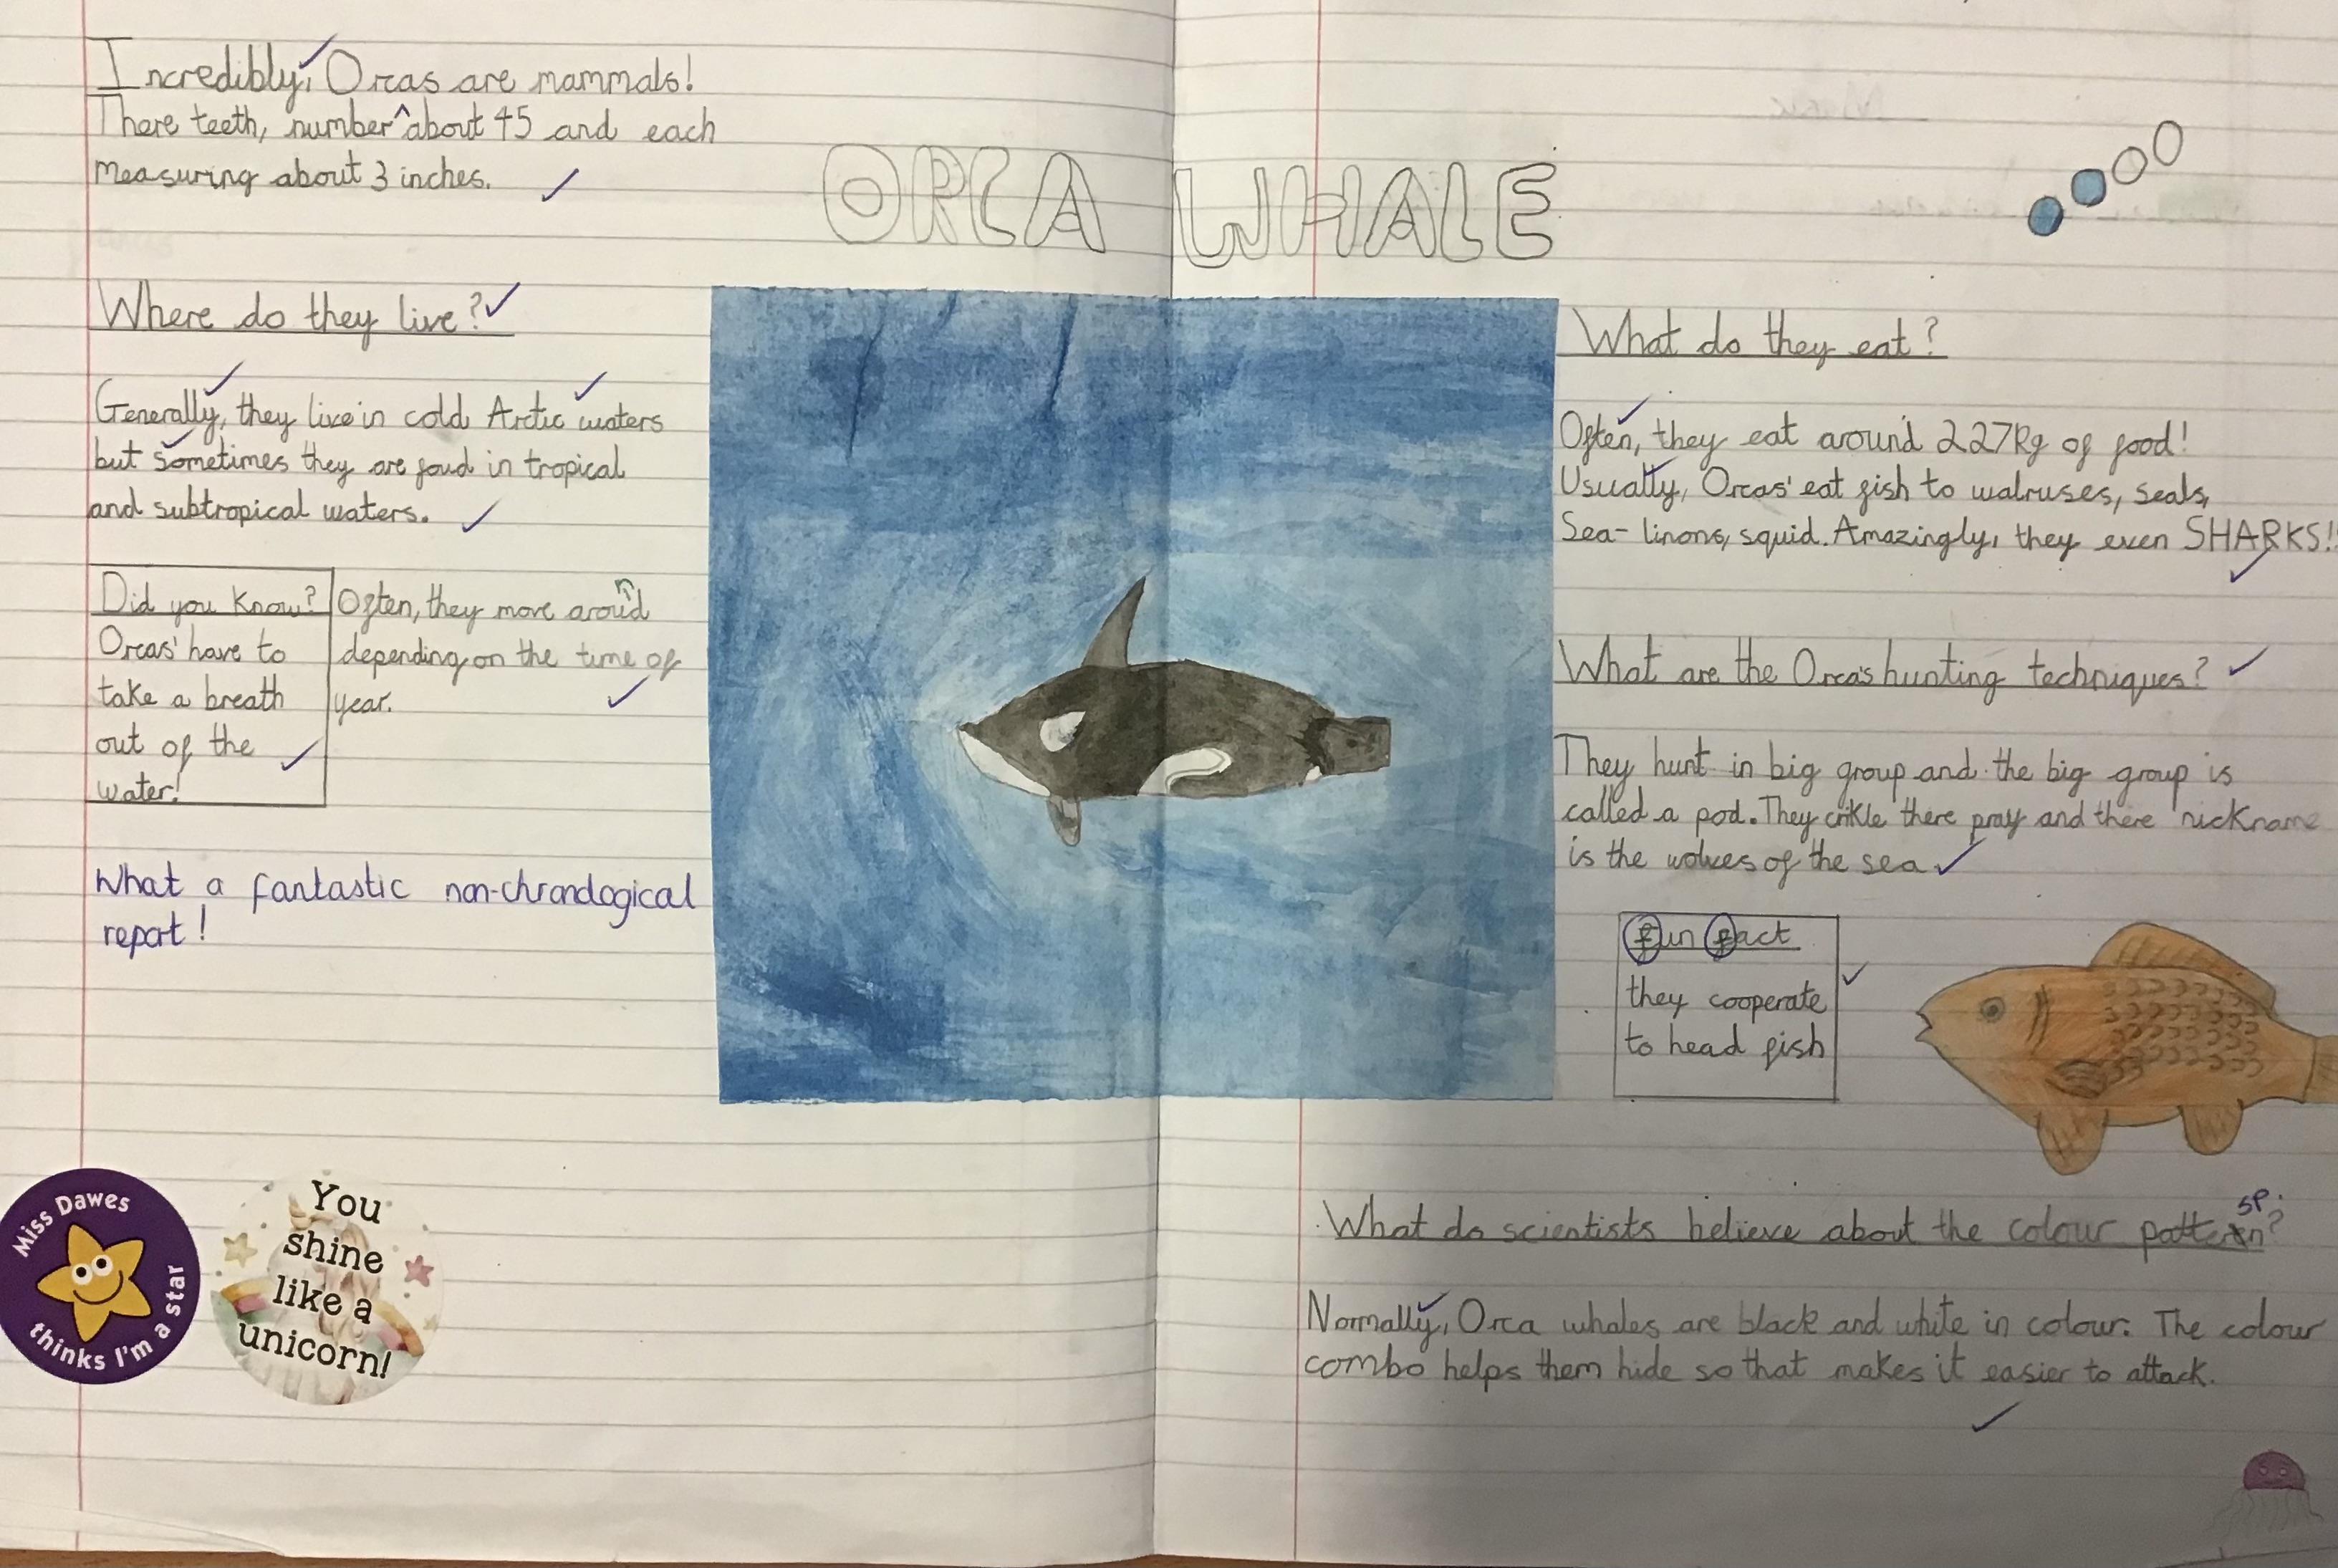 ORCA WHALE
Incredibly, Orcas are mammals!
There teeth, number ^about 45 and each
measuring about 3 inches.
Where do they live?
Generally, they live in cold Arctic waters
but sometimes they are foud in tropical
and subtropical waters.
Did you know?
Orcas' have to
take a breath
out of the
water!
Often, they move around
depending on the time of
year.
What a fantastic non-chronological
report!
Miss Dawes
thinks I'm a star
You
shine
like a
unicorn!
What do they eat?
Often, they eat around 227kg of food!
Usually, Orcas' eat fish to walruses, seals,
Sea-linons, squid. Amazingly, they even SHARKS!!
What are the Orca's hunting techniques?
They hunt in big group and the big group is
called a pod. They cirkle there pray and there nickname
is the wolves of the sea
Fun Fact
they cooperate
to head fish
sp.
What do scientists believe about the colour pattern?
Normally, Orca whales are black and white in colour. The colour
combo helps them hide so that makes it easier to attack.